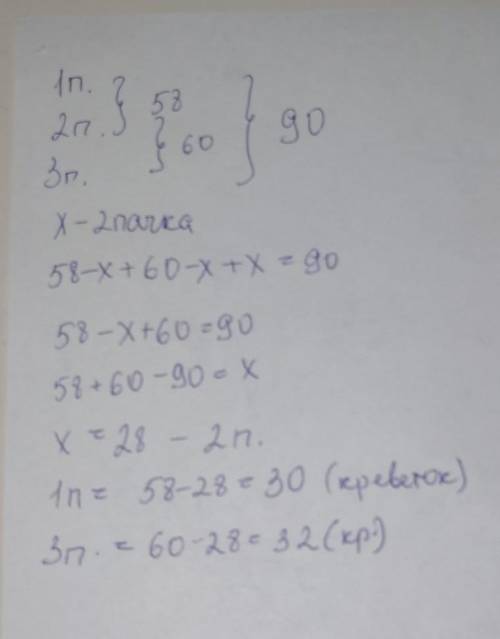 1п. } 58 } 90
2п. } 60
3п.
х - 2 пачка
58-х+60-х+х = 90
58-х+60=90
58+60-90=х
х = 28 - 2п.
1п = 58-28=30 (креветок)
3п. = 60-28= 32 (кр.)